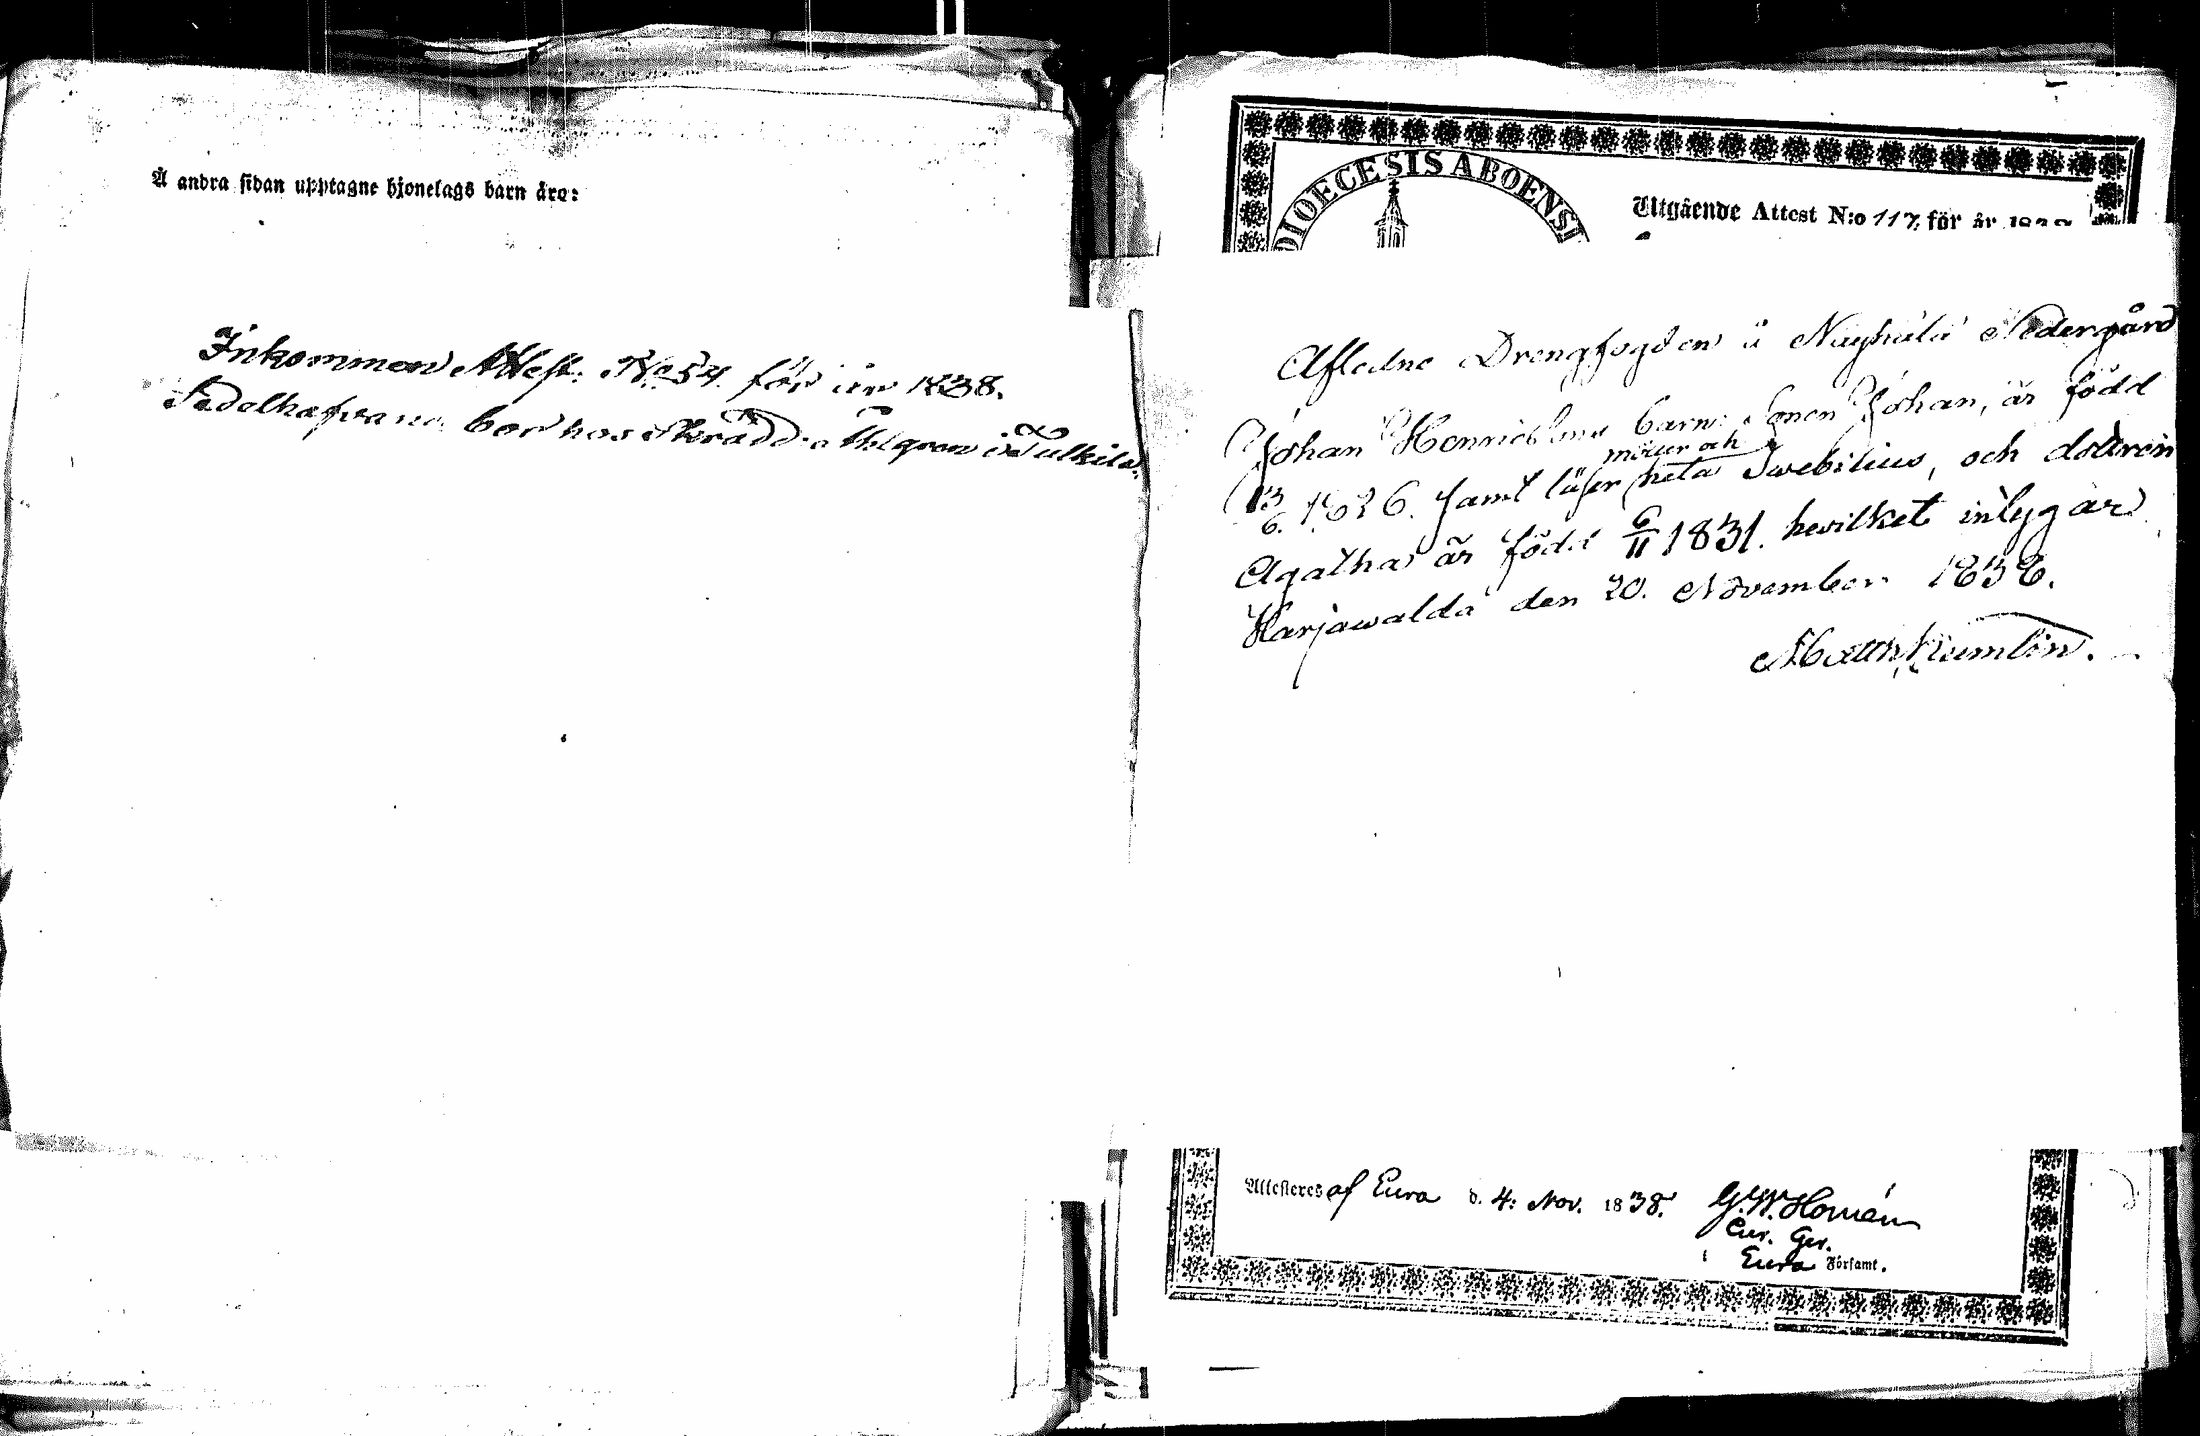 Å andra sidan upptagne hjonelags barn äro:
Inkommen Attest: No 54. för år 1838.
Sedelhafvane bor hos Skrädd: Ahlgren i Tulkila.
DIOECESIS ABOENSI
Utgående Attest N:o 117, för år 1838
Afledne Drengfogden å Nedergård
Johan Henricsson barn: Sonen Johan, är född
möter och
13/6. 1826. samt läser heta Swebilius, och dottren
Agatha är född 6/11 1831. hwilket intygar
Harjawalda den 20. November 1838.
Matth Kumlin.
Attesteres af Eura d. 4: Nov. 1838. G. W. Homén
Cur. Ger.
Eura Församl.